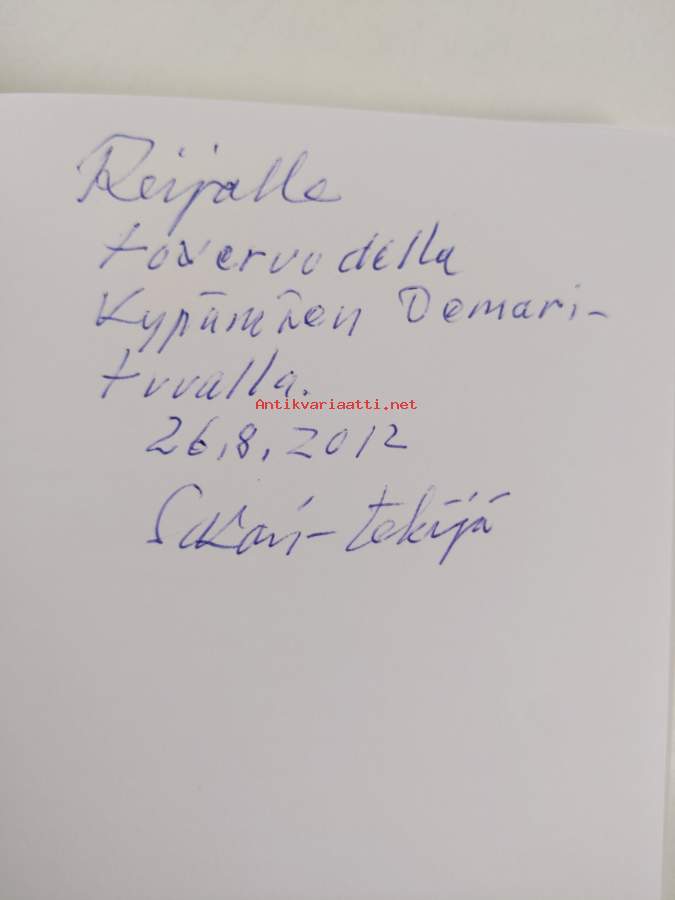 Reijalle
toveruudella
Kypärämäen Demari-
tuvalla.
Antikvariaatti.net
26.8.2012
Sakari - tekijä